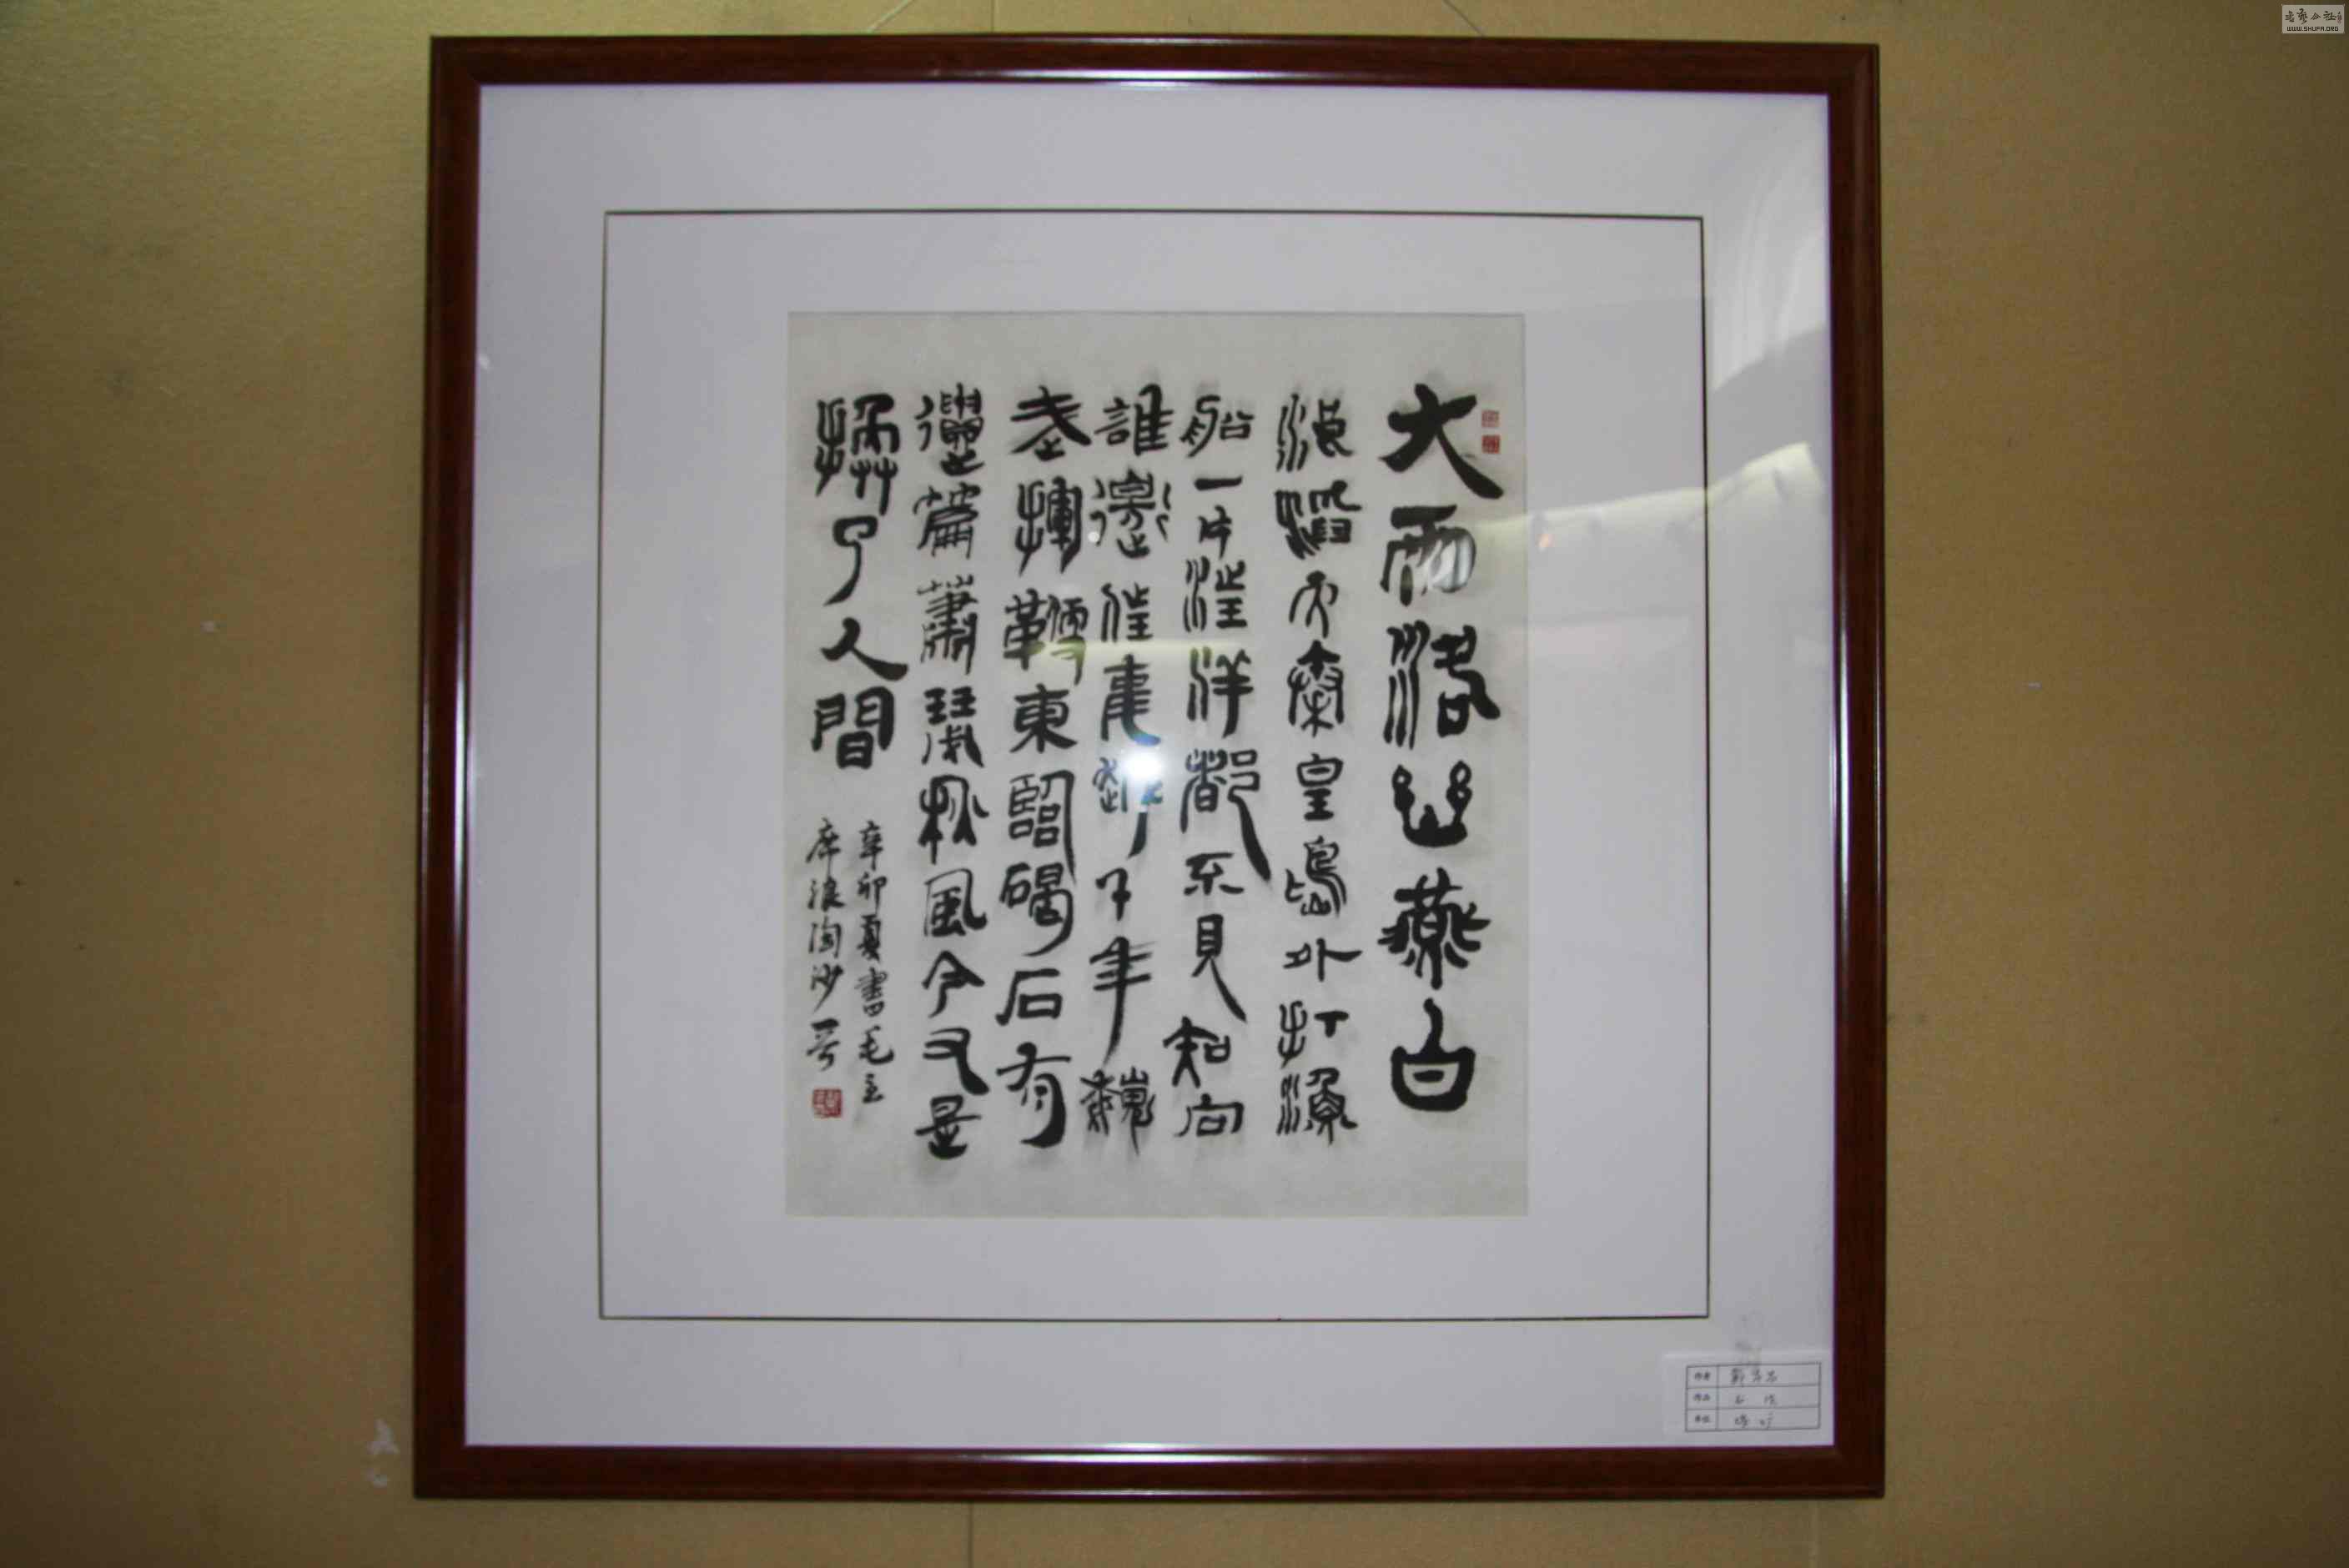 大雨落幽燕白
浪滔天秦皇島外打漁
船一片汪洋都不見知向
誰邊往事越千年魏
武揮鞭東臨碣石有
遺篇蕭瑟秋風今又是
換了人間
辛卯夏書毛主
席浪淘沙一首
作者
作品 书法
单位
WWW.SHUFA.ORG